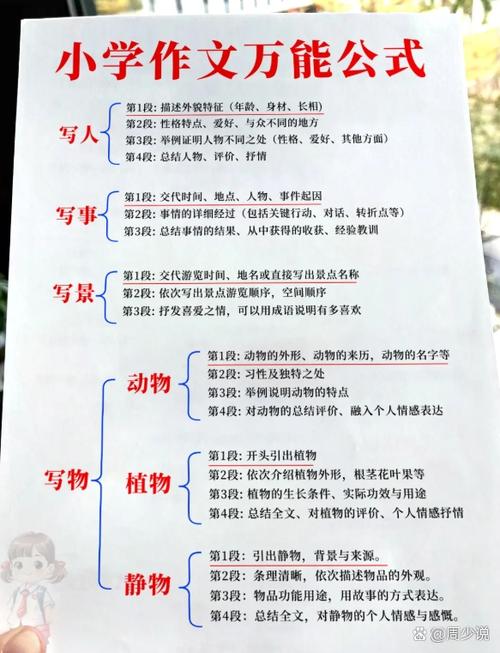 小学作文万能公式
写人
第1段: 描述外貌特征（年龄、身材、长相)
第2段: 性格特点、爱好、与众不同的地方
第3段: 举例证明人物不同之处（性格、爱好、其他方面）
第4段: 总结人物、评价、抒情
写事
第1段: 交代时间、地点、人物、事件起因
第2段: 事情的详细经过（包括关键行动、对话、转折点等）
第3段: 总结事情的结果、从中获得的收获、经验教训
写景
第1段: 交代游览时间、地名或直接写出景点名称
第2段: 依次写出景点游览顺序，空间顺序
第3段: 抒发喜爱之情，可以用成语说明有多喜欢
写物
动物
第1段: 动物的外形、动物的来历，动物的名字等
第2段: 习性及独特之处
第3段: 举例说明动物的特点
第4段: 对动物的总结评价、融入个人情感表达
植物
第1段: 开头引出植物
第2段: 依次介绍植物外形，根茎花叶果等
第3段: 植物的生长条件、实际功效与用途
第4段: 总结全文、对植物的评价、个人情感抒情
静物
第1段：引出静物，背景与来源。
第2段：条理清晰，依次描述物品的外观。
第3段：物品功能用途，用故事的方式表达。
第4段：总结全文，对静物的个人情感与感慨。
百家号@周少说